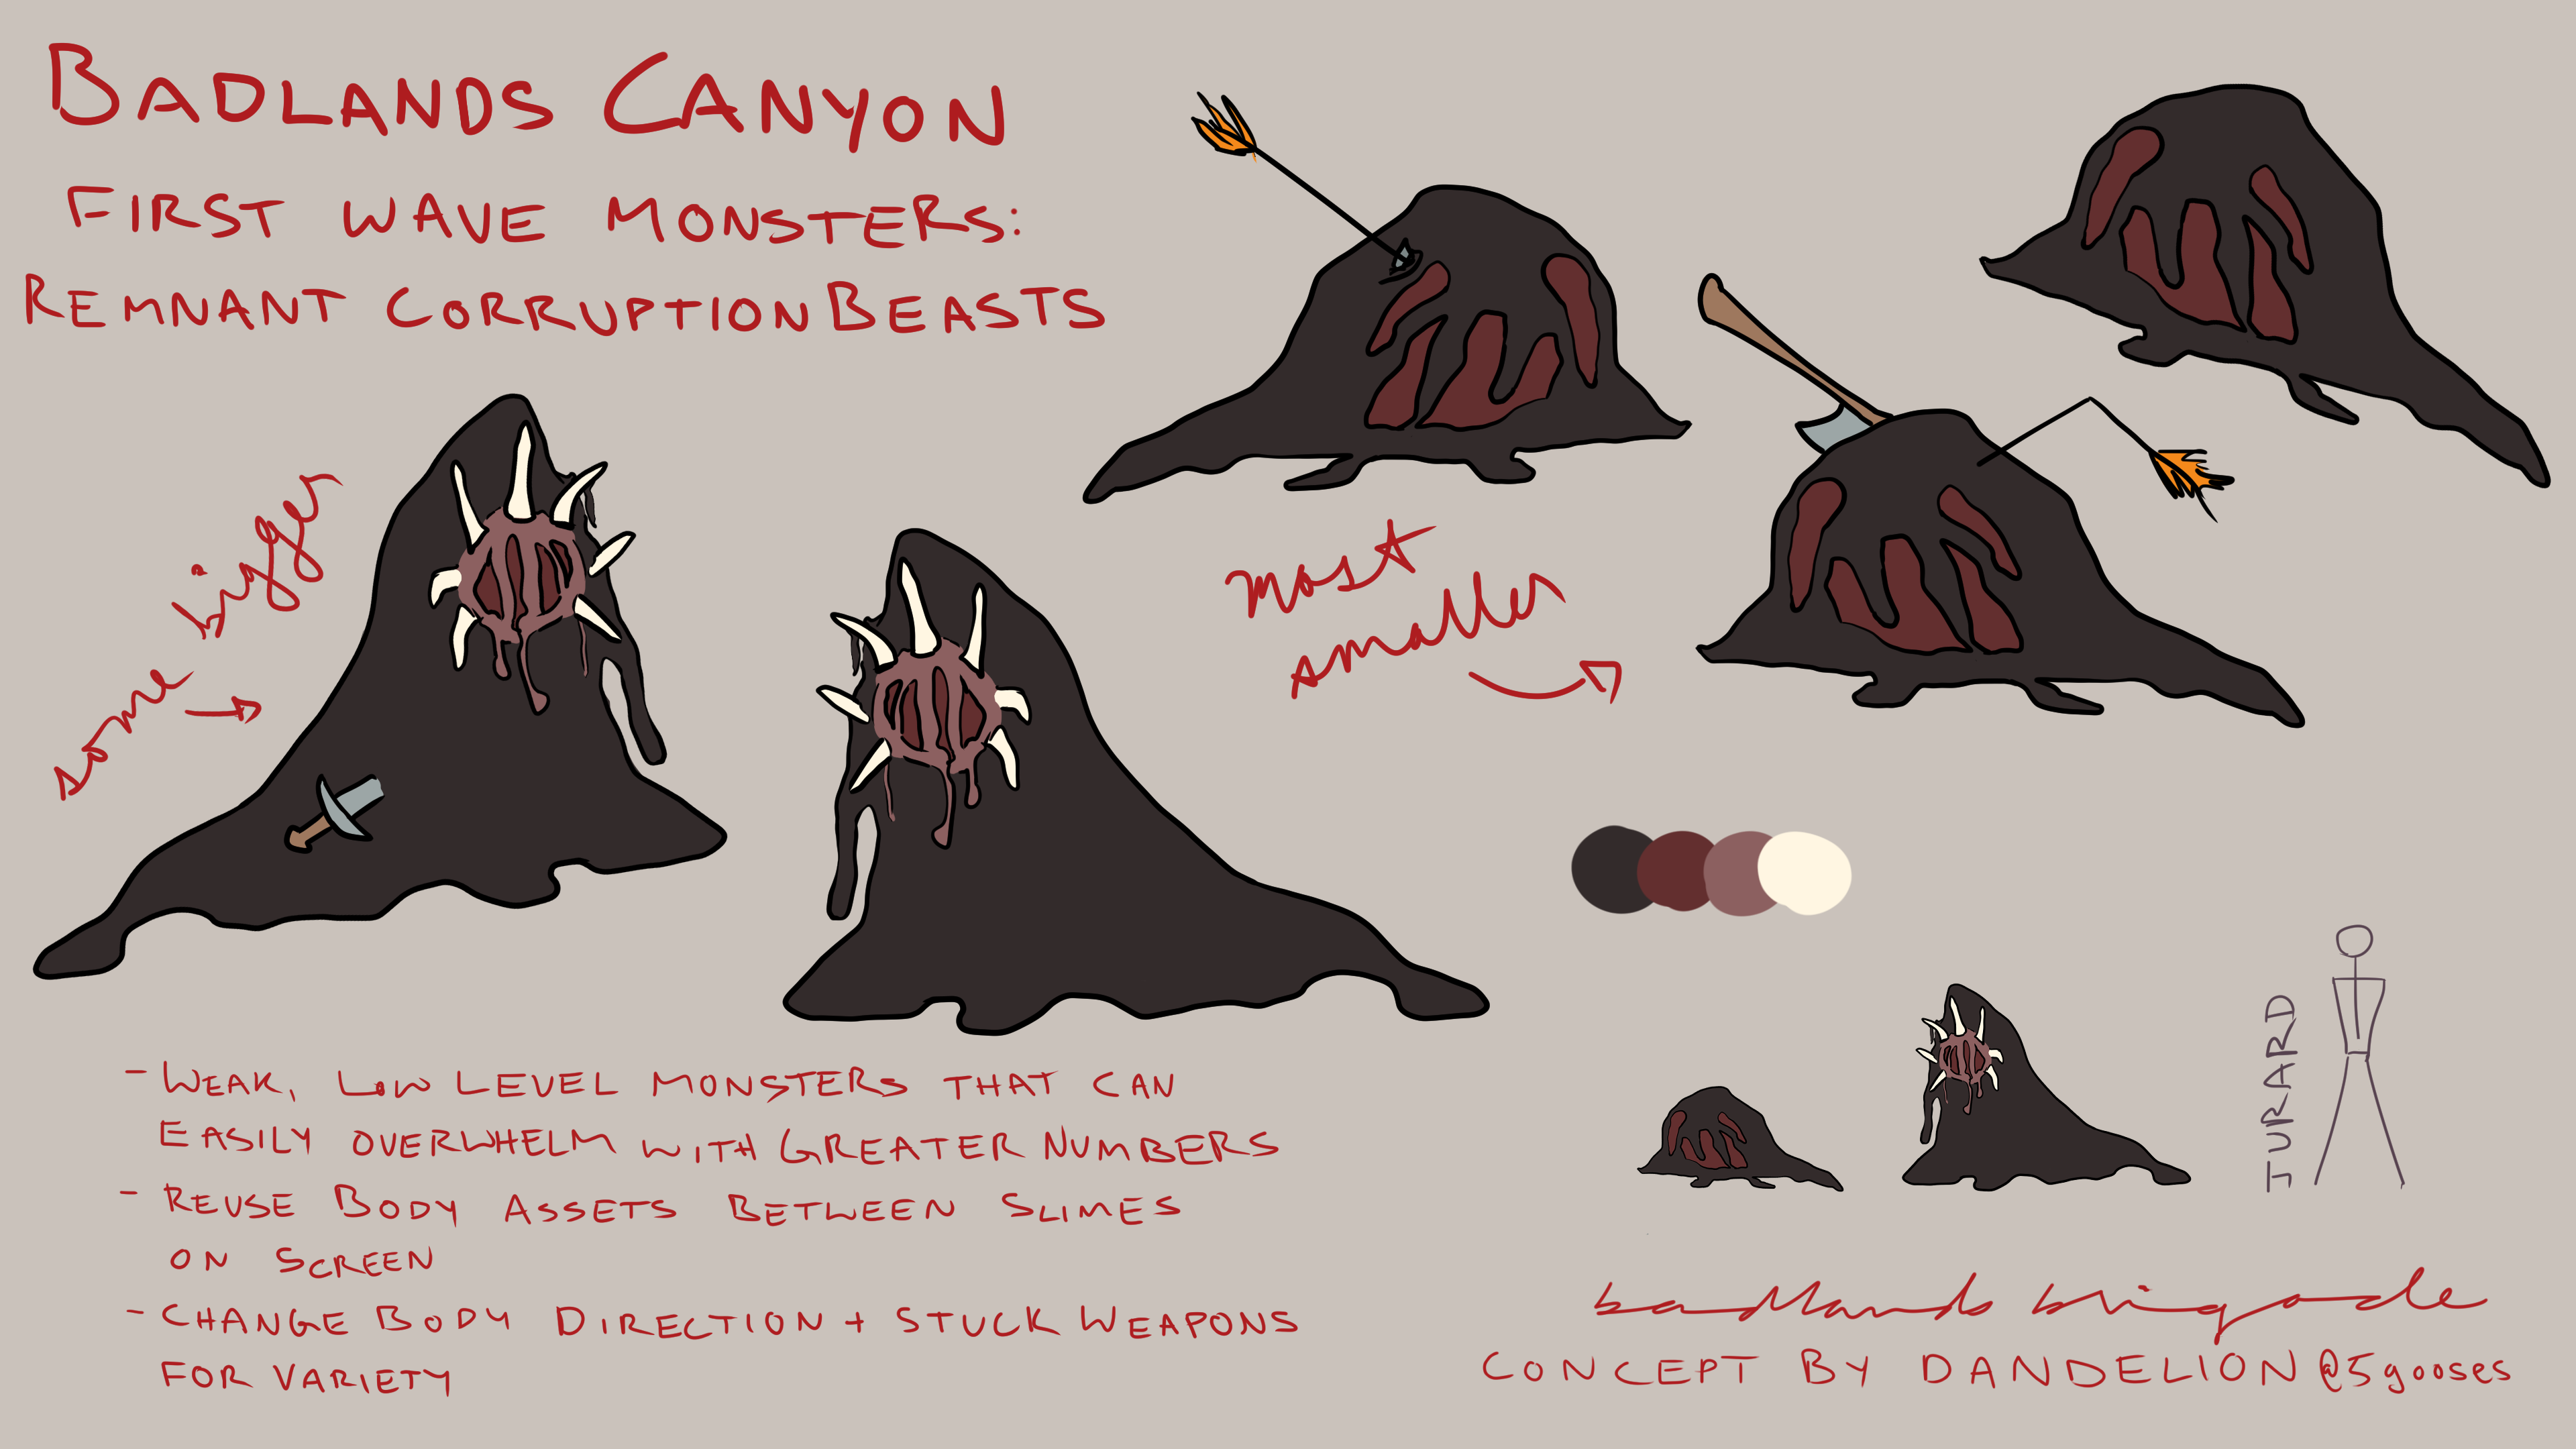 BADLANDS CANYON
FIRST WAVE MONSTERS:
REMNANT CORRUPTIONBEASTS
some bigger
most
smaller
- WEAK, LOW LEVEL MONSTERS THAT CAN
EASILY OVERWHELM WITH GREATER NUMBERS
- REUSE BODY ASSETS BETWEEN SLIMES
ON SCREEN
- CHANGE BODY DIRECTION + STUCK WEAPONS
FOR VARIETY
JURARD
badlands brigade
CONCEPT BY DANDELION @5gooses